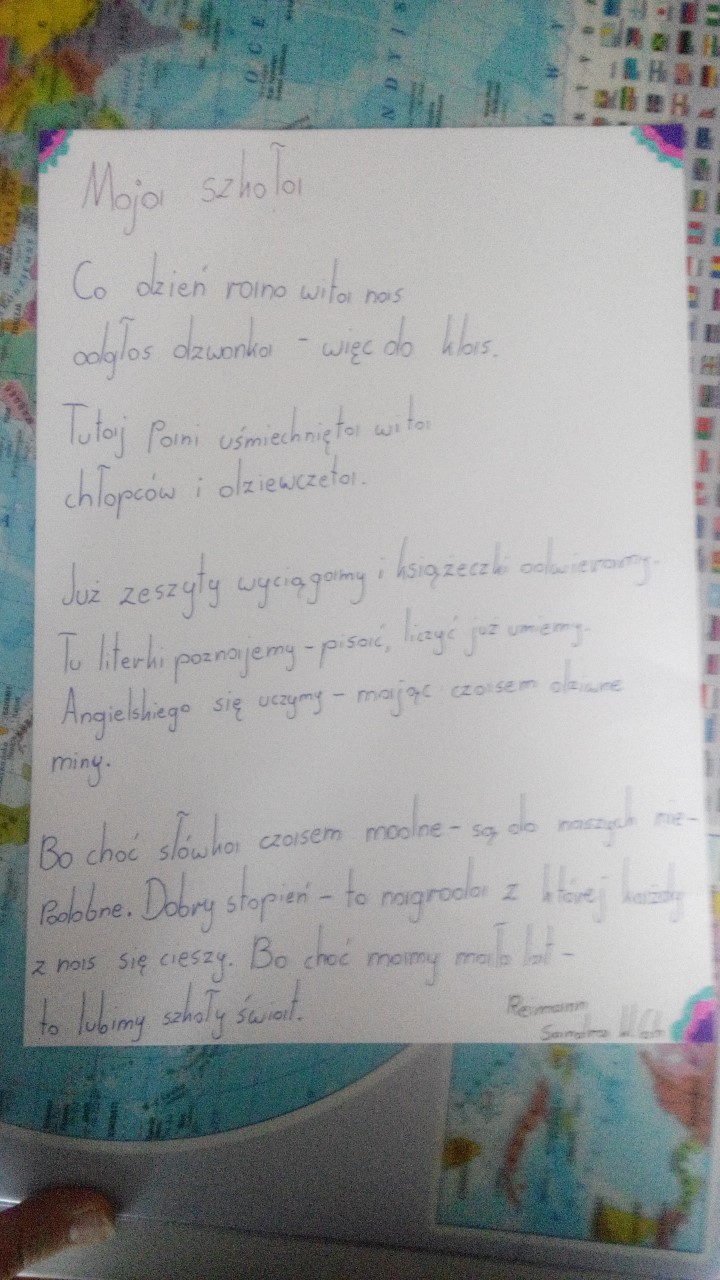 Moja szkoła
Co dzień rano wita nas
odgłos dzwonka - więc do klas.
Tutaj Pani uśmiechnięta wita
chłopców i dziewczeta.
Już zeszyty wyciągamy i książeczki odwieramy.
Tu literki poznajemy - pisać, liczyć już umiemy.
Angielskiego się uczymy - mając czasem dziwne
miny.
Bo choć słówka czasem modne - są do naszych nie-
Podobne. Dobry stopień - to nagroda z której każdy
z nas się cieszy. Bo choć mamy mało lat -
to lubimy szkoły świat.
Reimann
Sandra